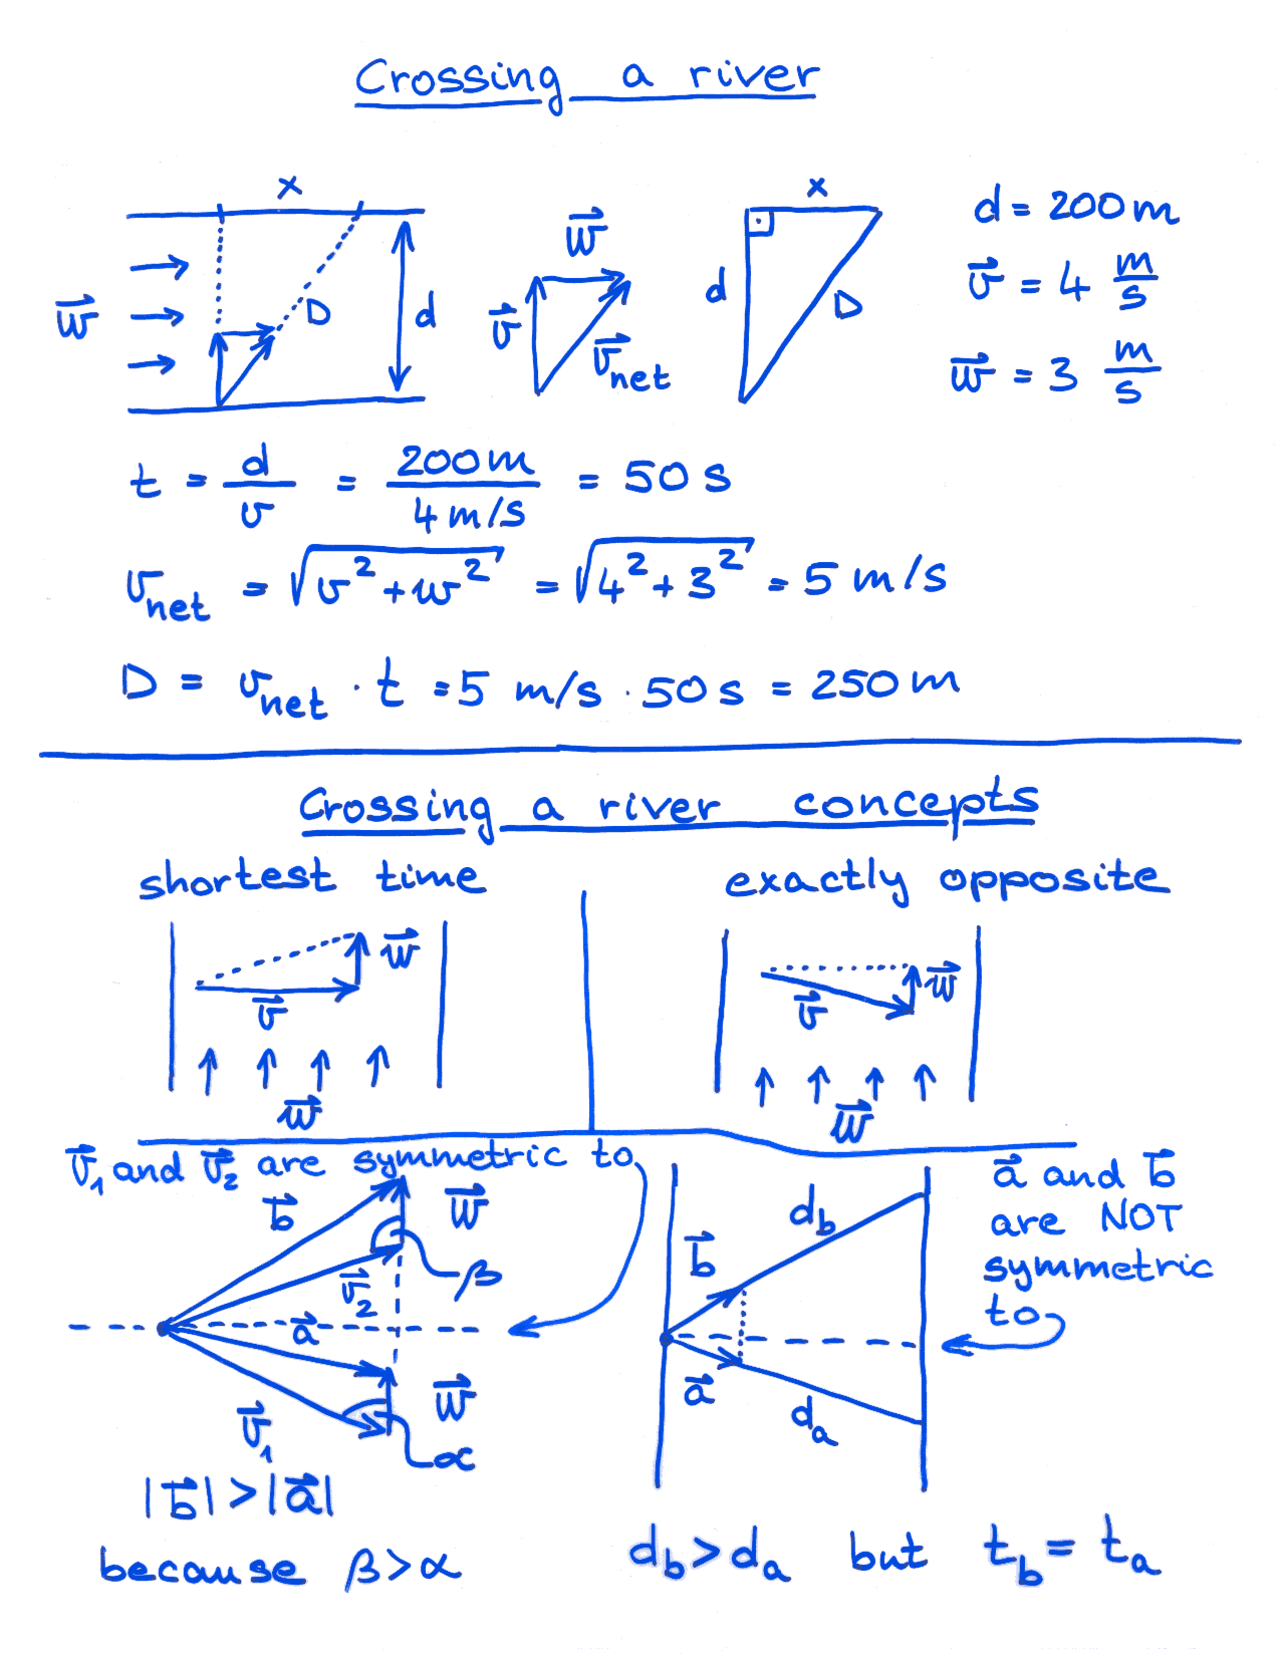 Crossing a river
x
w⃗
D
d
w⃗
v⃗
v⃗net
x
d
D
d = 200 m
v⃗ = 4 m/s
w⃗ = 3 m/s
t = d/v = 200m/4 m/s = 50 s
vnet = √(v²+w²) = √(4²+3²) = 5 m/s
D = vnet · t = 5 m/s · 50 s = 250 m
Crossing a river concepts
shortest time
w⃗
v⃗
w⃗
exactly opposite
w⃗
v⃗
w⃗
v⃗₁ and v⃗₂ are symmetric to
b⃗
w⃗
β
v⃗₂
a⃗
w⃗
v⃗₁
α
|b⃗| > |a⃗|
because β > α
db
b⃗
a⃗
da
a⃗ and b⃗
are NOT
symmetric
to
db > da but tb = ta